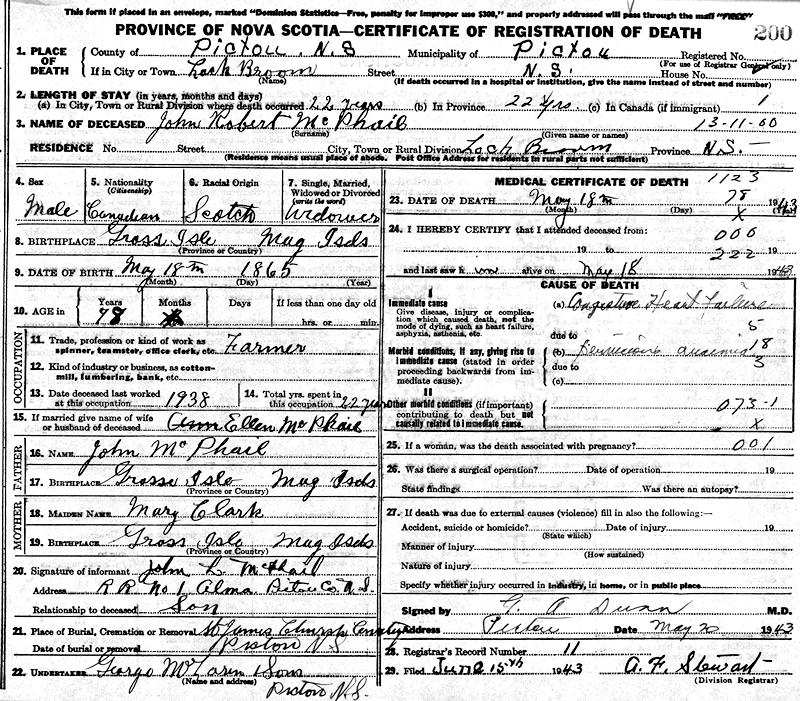 This form if placed in an envelope, marked "Dominion Statistics—Free, penalty for improper use $300," and properly addressed will pass through the mail "FREE"
PROVINCE OF NOVA SCOTIA—CERTIFICATE OF REGISTRATION OF DEATH 200
1. PLACE OF DEATH County of Pictou. N.S Municipality of Pictou Registered No. (For use of Registrar General only)
If in City or Town Loch Broom (Name) Street N.S. House No.
(If death occurred in a hospital or institution, give the name instead of street and number)
2. LENGTH OF STAY (in years, months and days)
(a) In City, Town or Rural Division where death occurred 22 years (b) In Province 22 Yrs. (c) In Canada (if immigrant) 1
3. NAME OF DECEASED John Robert McPhail 13-11-00
(Surname) (Given name or names)
RESIDENCE No. Street City, Town or Rural Division Loch Broom Province N.S.-
(Residence means usual place of abode. Post Office Address for residents in rural parts not sufficient)
4. Sex Male
5. Nationality (Citizenship) Canadian
6. Racial Origin Scotch
7. Single, Married, Widowed or Divorced (write the word) Widower
8. BIRTHPLACE Gross Isle Mag Isds
(Province or Country)
9. DATE OF BIRTH May 18th 1865
(Month) (Day) (Year)
10. AGE in Years Months Days If less than one day old
78 hrs. or min.
OCCUPATION
11. Trade, profession or kind of work as spinner, teamster, office clerk, etc. Farmer
12. Kind of industry or business, as cotton-mill, lumbering, bank, etc.
13. Date deceased last worked at this occupation 1938
14. Total yrs. spent in this occupation 22 years
15. If married give name of wife or husband of deceased Ann Ellen McPhail
FATHER
16. NAME John McPhail
17. BIRTHPLACE Grosse Isle Mag Isds
(Province or Country)
MOTHER
18. MAIDEN NAME Mary Clark
19. BIRTHPLACE Gross Isle Mag Isds
(Province or Country)
20. Signature of informant John L McPhail
Address R R No 1 Alma Pictou Co. N.S.
Relationship to deceased Son
21. Place of Burial, Cremation or Removal St James Church Cemetery
Date of burial or removal Pictou N.S
22. UNDERTAKER George McLaren & Sons
(Name and address) Pictou N.S.
MEDICAL CERTIFICATE OF DEATH 1123
23. DATE OF DEATH May 18th 78 1943
(Month) (Day) X (Year)
24. I HEREBY CERTIFY that I attended deceased from: 000
19 to 222
and last saw h im alive on May 18 1943
CAUSE OF DEATH
I
Immediate cause (a) Congestive Heart Failure
Give disease, injury or complication which caused death, not the mode of dying, such as heart failure, asphyxia, asthenia, etc. due to 5
Morbid conditions, if any, giving rise to immediate cause (stated in order proceeding backwards from immediate cause). (b) Pernicious anaemia 18
due to 3
(c)
II
Other morbid conditions (if important) contributing to death but not causally related to immediate cause. 073-1
X
25. If a woman, was the death associated with pregnancy? 001
26. Was there a surgical operation? Date of operation 19
State findings Was there an autopsy?
27. If death was due to external causes (violence) fill in also the following:—
Accident, suicide or homicide? Date of injury 19
(State which)
Manner of injury
(How sustained)
Nature of injury
Specify whether injury occurred in industry, in home, or in public place
Signed by G. A Dunn M.D.
Address Pictou Date May 20 1943
28. Registrar's Record Number 11
29. Filed June 15th 1943 A. F. Stewart
(Division Registrar)